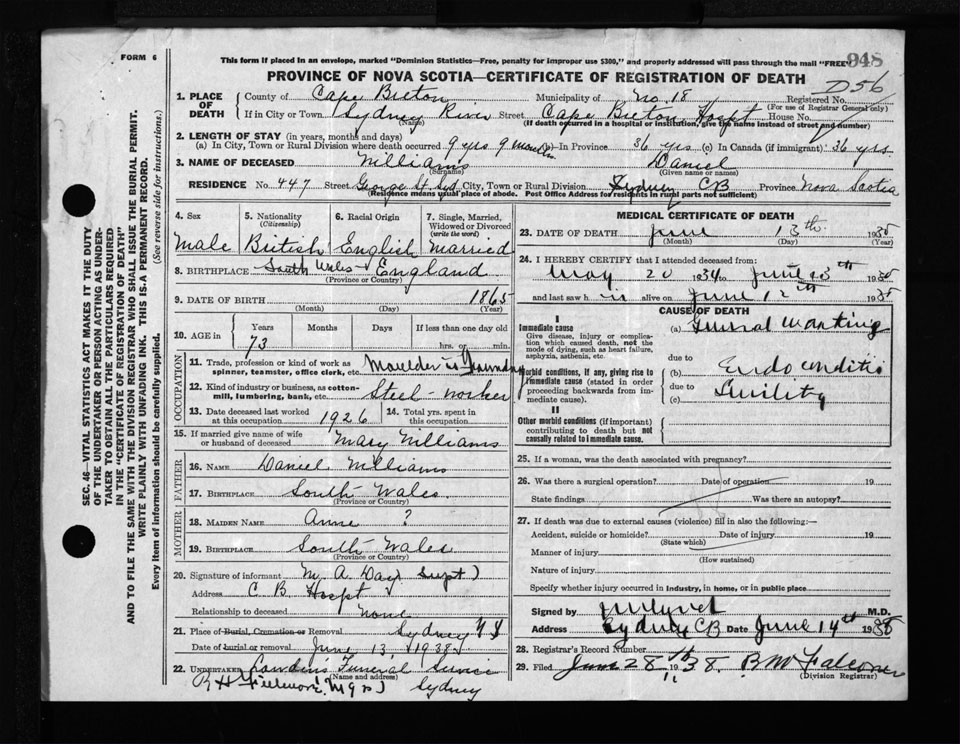 FORM 6
This form if placed in an envelope, marked "Dominion Statistics—Free, penalty for improper use $300," and properly addressed will pass through the mail "FREE"
948
PROVINCE OF NOVA SCOTIA—CERTIFICATE OF REGISTRATION OF DEATH
D56
1. PLACE OF DEATH
County of Cape Breton Municipality of No. 18 Registered No.
(For use of Registrar General only)
If in City or Town Sydney River Street Cape Breton Hospt House No.
(Name) (If death occurred in a hospital or institution, give the name instead of street and number)
2. LENGTH OF STAY (in years, months and days)
(a) In City, Town or Rural Division where death occurred 9 yrs 9 months (b) In Province 36 yrs (c) In Canada (if immigrant) 36 yrs
3. NAME OF DECEASED Williams Daniel
(Surname) (Given name or names)
RESIDENCE No. 447 Street George St. Syd. City, Town or Rural Division Sydney CB Province Nova Scotia
(Residence means usual place of abode. Post Office Address for residents in rural parts not sufficient)
4. Sex
Male
5. Nationality
(Citizenship)
British
6. Racial Origin
English
7. Single, Married, Widowed or Divorced
(write the word)
Married
8. BIRTHPLACE South Wales England
(Province or Country)
9. DATE OF BIRTH 1865
(Month) (Day) (Year)
10. AGE in
Years Months Days If less than one day old
73 hrs. or min.
OCCUPATION
11. Trade, profession or kind of work as spinner, teamster, office clerk, etc. Moulder in Foundry
12. Kind of industry or business, as cotton-mill, lumbering, bank, etc. Steel-worker
13. Date deceased last worked at this occupation 1926
14. Total yrs. spent in this occupation
15. If married give name of wife or husband of deceased Mary Williams
FATHER
16. NAME Daniel Williams
17. BIRTHPLACE South Wales
(Province or Country)
MOTHER
18. MAIDEN NAME Anne ?
19. BIRTHPLACE South Wales
(Province or Country)
20. Signature of informant M. A. Day (Supt)
Address C. B. Hospt
Relationship to deceased None
21. Place of Burial, Cremation or Removal Sydney N S
Date of burial or removal June 13, 1938
22. UNDERTAKER Funeral Service
(Name and address)
Mgr) Sydney
MEDICAL CERTIFICATE OF DEATH
23. DATE OF DEATH June 13th 1938
(Month) (Day) (Year)
24. I HEREBY CERTIFY that I attended deceased from:
May 20 1934 to June 13th 1938
and last saw him alive on June 12th 1938
CAUSE OF DEATH
I
Immediate cause
Give disease, injury or complication which caused death, not the mode of dying, such as heart failure, asphyxia, asthenia, etc.
(a) General Wanting
due to
Morbid conditions, if any, giving rise to immediate cause (stated in order proceeding backwards from immediate cause).
(b) Endocarditis
due to
(c) Senility
II
Other morbid conditions (if important) contributing to death but not causally related to immediate cause.
25. If a woman, was the death associated with pregnancy?
26. Was there a surgical operation? Date of operation 19
State findings Was there an autopsy?
27. If death was due to external causes (violence) fill in also the following:—
Accident, suicide or homicide? Date of injury 19
(State which)
Manner of injury
(How sustained)
Nature of injury
Specify whether injury occurred in industry, in home, or in public place
Signed by M.D.
Address Sydney CB Date June 14th 1938
28. Registrar's Record Number
29. Filed June 28th 1938.
(Division Registrar)
SEC. 46—VITAL STATISTICS ACT MAKES IT THE DUTY
OF THE UNDERTAKER OR PERSON ACTING AS UNDER-
TAKER TO OBTAIN ALL THE PARTICULARS REQUIRED
IN THE "CERTIFICATE OF REGISTRATION OF DEATH"
AND TO FILE THE SAME WITH THE DIVISION REGISTRAR WHO SHALL ISSUE THE BURIAL PERMIT.
WRITE PLAINLY WITH UNFADING INK. THIS IS A PERMANENT RECORD.
Every item of information should be carefully supplied. (See reverse side for instructions.)